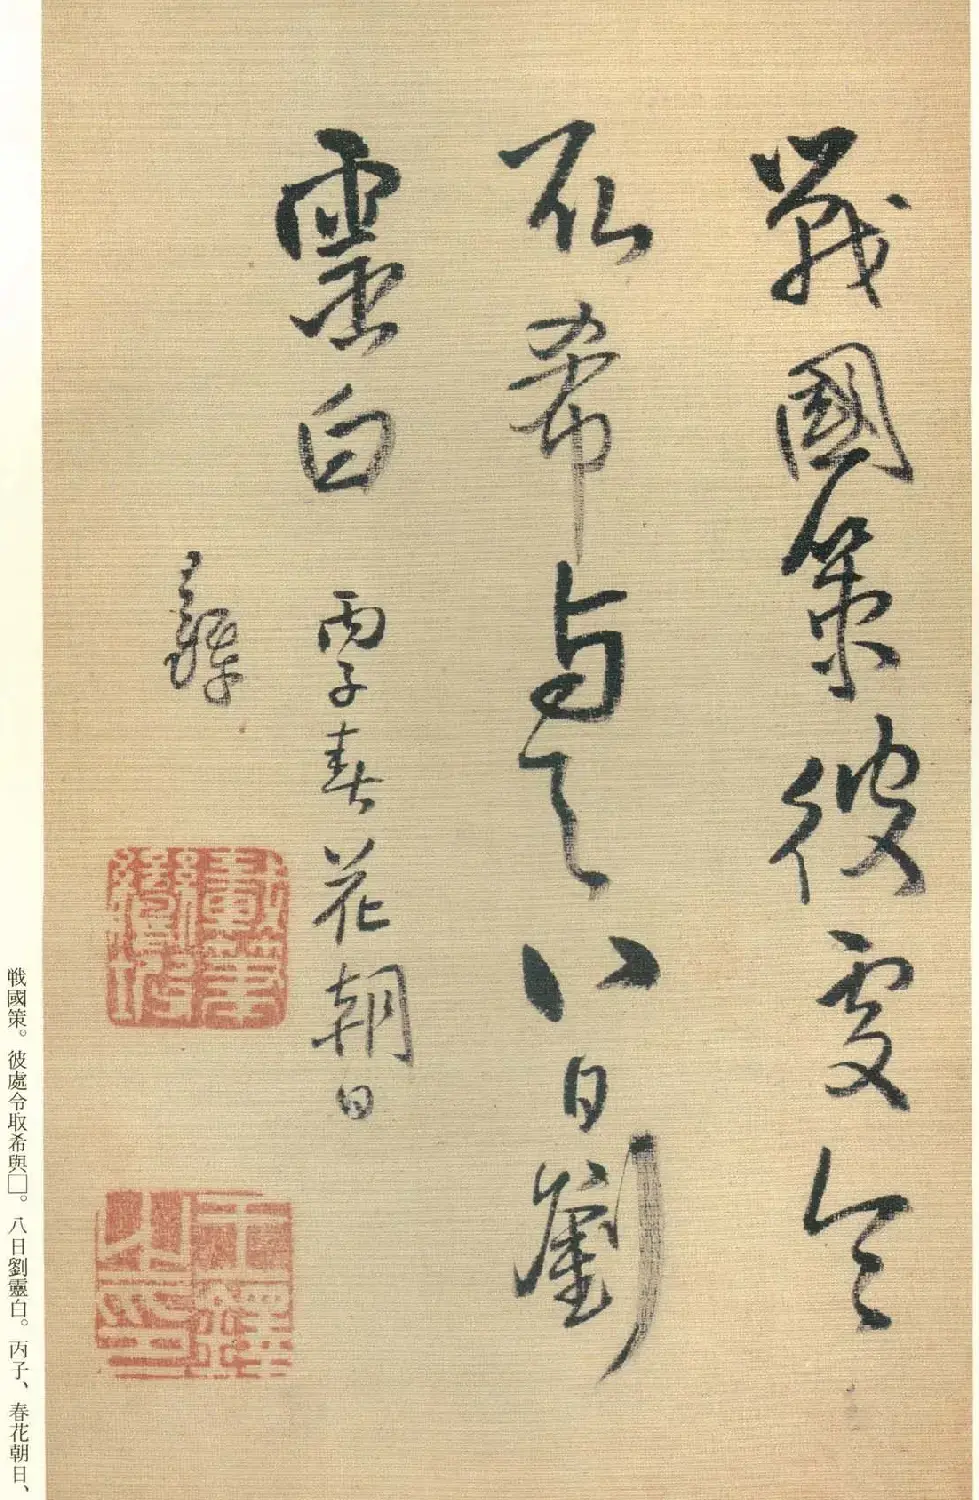 戰國策彼處令
取希與八日劉
靈白 丙子春花朝日
鐸
王鐸
之印
戦國策。彼處令取希與□。八日劉靈白。丙子、春花朝日、